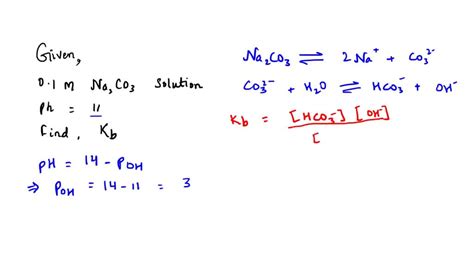 Given,
0.1 M Na2CO3 Solution
Ph = 11
find, Kb
pH = 14 - POH
⇒ POH = 14 - 11 = 3
Na2CO3 ⇌ 2Na+ + CO3^2-
CO3^2- + H2O ⇌ HCO3^- + OH^-
Kb = [HCO3^-] [OH^-]
[